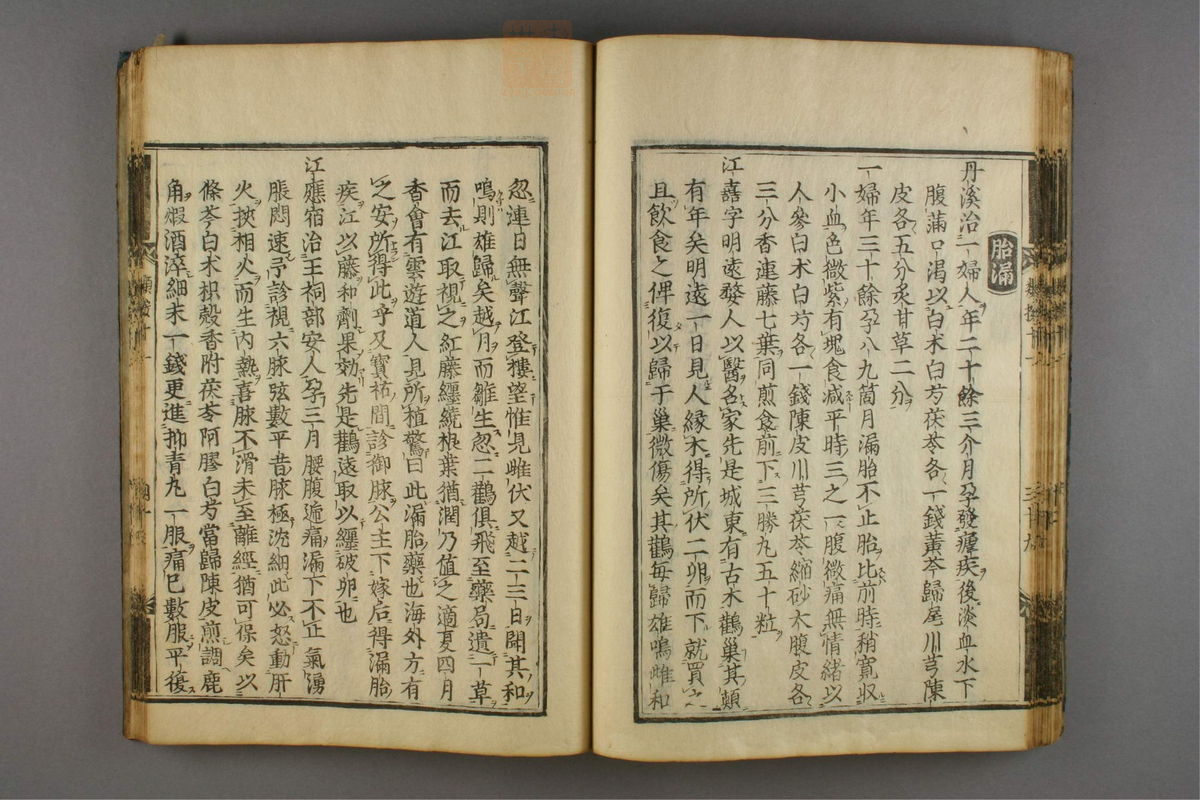 胎漏
丹溪治一婦人年二十餘三介月孕發瘧疾後淡血水下
腹滿口渴以白术白芍茯苓各一錢黃芩歸尾川芎陳
皮各五分炙甘草二分
一婦年三十餘孕八九箇月漏胎不止胎比前時稍寬収
小血色微紫有塊食減平時三之一腹微痛無情緒以
人參白术白芍各一錢陳皮川芎茯苓縮砂大腹皮各
三分香連藤七葉同煎食前下三勝丸五十粒
江嘉字明遠婺人以醫名家先是城東有古木鸛巢其顛
有年矣明遠一日見人緣木得所伏二卵而下就買之
且飲食之俾復以歸于巢微傷矣其鸛每歸雄鳴雌和
忽連日無聲江登樓望惟見雌伏又越二三日聞其和
鳴則雄歸矣越月而雛生忽二鸛俱飛至藥局遺一草
而去江取視之紅藤纏繞根葉猶潤乃值之適夏四月
香會有雲遊道人見所植驚曰此漏胎藥也海外方有
之安所得此乎又寶祐間診御脉公主下嫁后得漏胎
疾江以藤和劑果効先是鸛遠取以纏破卵也
江應宿治王祠部安人孕三月腰腹遍痛漏下不止氣湧
脹悶速予診視六脉弦數平昔脉極沈細此必怒動肝
火挾相火而生内熱喜脉不滑未至離經猶可保矣以
條芩白术枳殼香附茯苓阿膠白芍當歸陳皮煎調鹿
角煆酒淬細末一錢更進抑青丸一服痛已數服平復